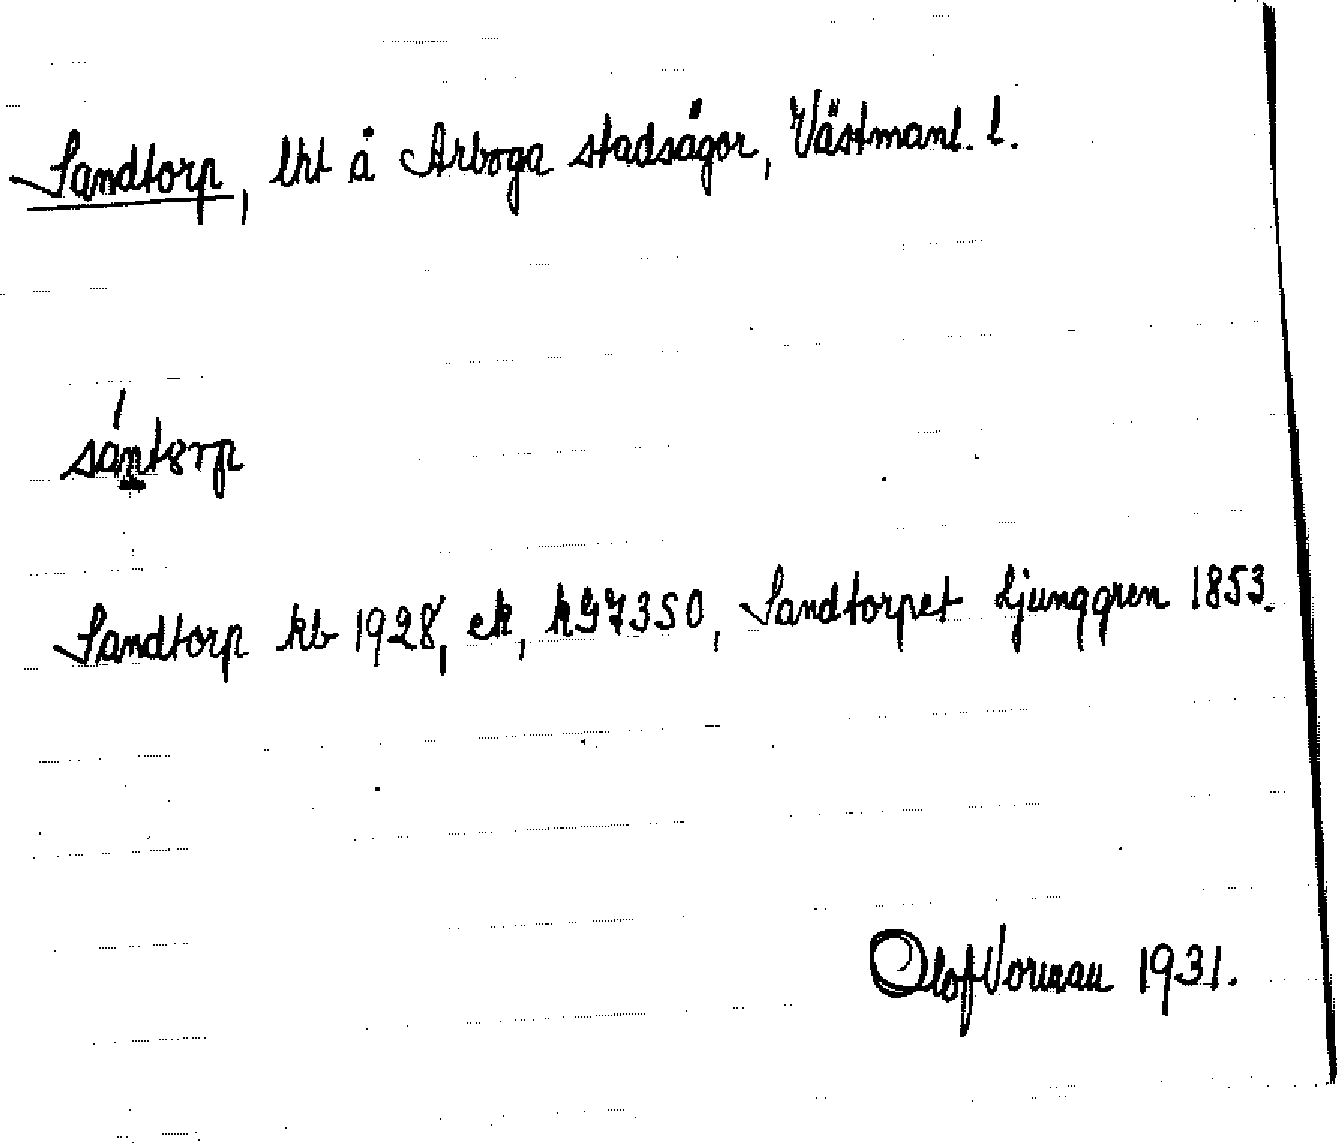 Sandtorp, lht å Arboga stadsägor, Västmanl. l.
sántorp
Sandtorp kb 1928, ek, kg 7350, Sandtorpet Ljunggren 1853.
Olof Vorman 1931.